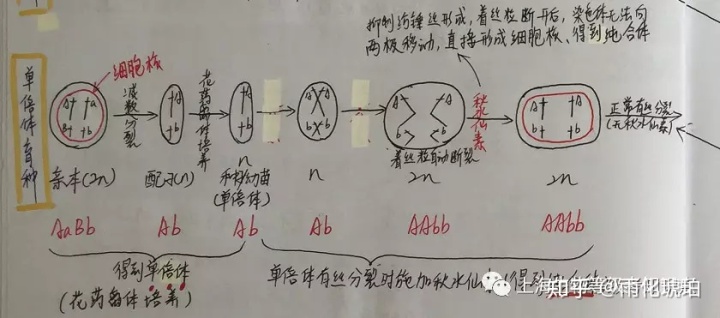 抑制纺锤丝形成，着丝粒断开后，染色体无法向
两极移动，直接形成细胞核、得到纯合体
单倍体育种
细胞核
A a
B b
减数分裂
A
b
花药离体培养
A
b
A A
b b
A A
b b
着丝粒自动断裂
秋水仙素
A A
b b
正常有丝分裂
(无秋水仙素)
亲本(2n)
配子(n)
n
幼苗
(单倍体)
n
2n
2n
AaBb
Ab
Ab
Ab
AAbb
AAbb
得到单倍体
(花药离体培养)
单倍体有丝分裂时施加秋水仙素(得到
知乎 @雨化琥珀